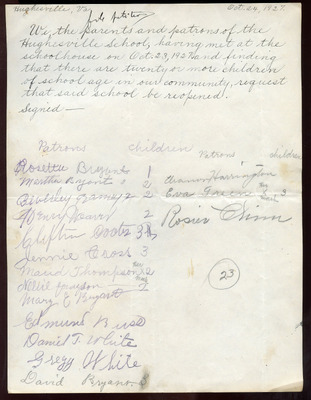 Hughesville, Va. Oct. 24, 1927.
We, the parents and patrons of the
Hughesville School, having met at the
schoolhouse on Oct. 23, 1927, and finding
that there are twenty or more children
of school age in our community, request
that said school be reopened.
Signed —
Patrons children
Patrons children
Rosetta Bryant 1
Martha Bryant 2
2
2
Clifton 3
Jennie Cross 3
Maud Thompson 2
Mary E Bryant
Edmund
Daniel T. White
Gregg White
David
Harrington
Eva Green 3
Rosier
23